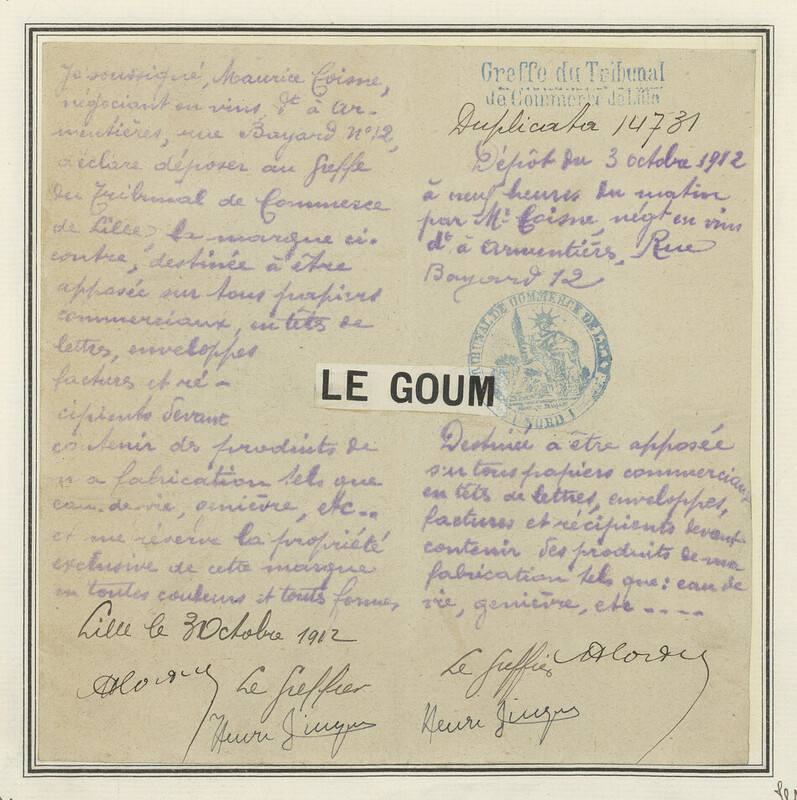 Je soussigné, Maurice Coisne,
négociant en vins, dt à Ar-
mentières, rue Bayard No 12,
déclare déposer au Greffe
du Tribunal de Commerce
de Lille la marque ci-
contre, destinée à être
apposée sur tous papiers
commerciaux, en têts de
lettres, enveloppes
factures et ré-
cipients devant
contenir des produits de
ma fabrication tels que
eau-de-vie, genièvre, etc...
et me réserve la propriété
exclusive de cette marque
en toutes couleurs et touts formes,
Lille le 3 Octobre 1912
Le Greffier
Henri
LE GOUM
Greffe du Tribunal
de Commerce de Lille
Duplicata 14731
Dépôt du 3 octobre 1912
à neuf heures du matin
par Mr Coisne, négt en vins
dt à Armentiérs, Rue
Bayard 12
TRIBUNAL DE COMMERCE DE LILLE
NORD
Destiné à être apposée
sur tous papiers commerciaux,
en têts de lettres, enveloppes,
factures et récipients devant
contenir des produits de ma
fabrication tels que: eau de
vie, genièvre, etc.....
Le Greffier
Henri